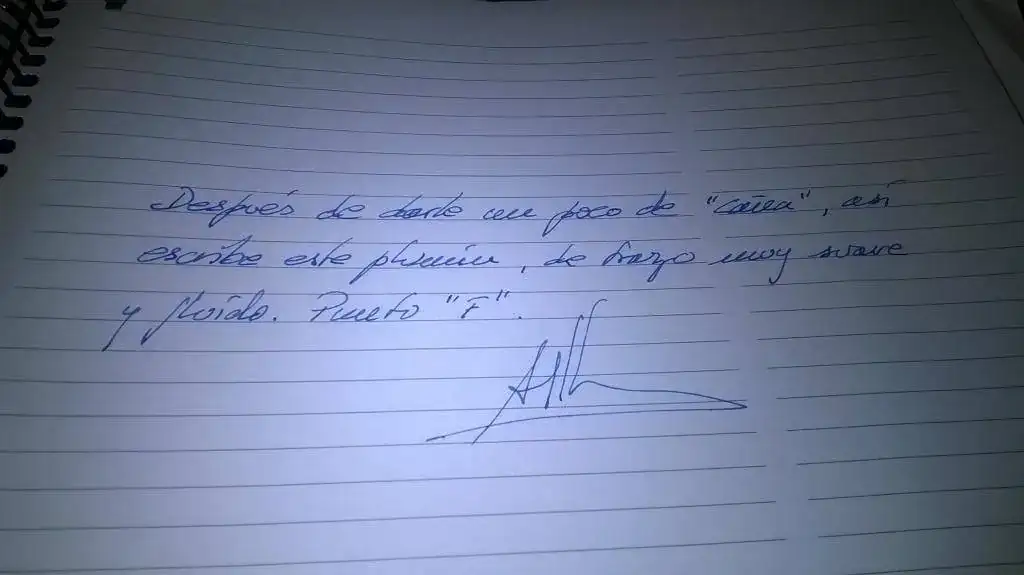 Después de darle un poco de "caña", así
escribe este plumín, de trazo muy suave
y fluído. Punto "F".